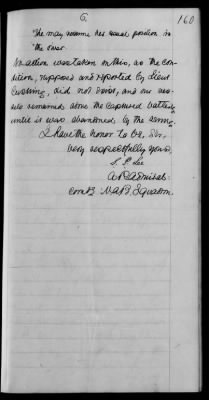 6
160
She may resume her usual position in
the river.
No action was taken on this, as the con-
dition, supposed and reported by Lieut
Cushing, did not exist, and our ves-
sels remained above the captured battery
until it was abandoned by the army.
I have the honor to be, Sir,
Very respectfully yours,
S. P. Lee
A. R. Admiral
Comd'g N. A. B. Squadron.